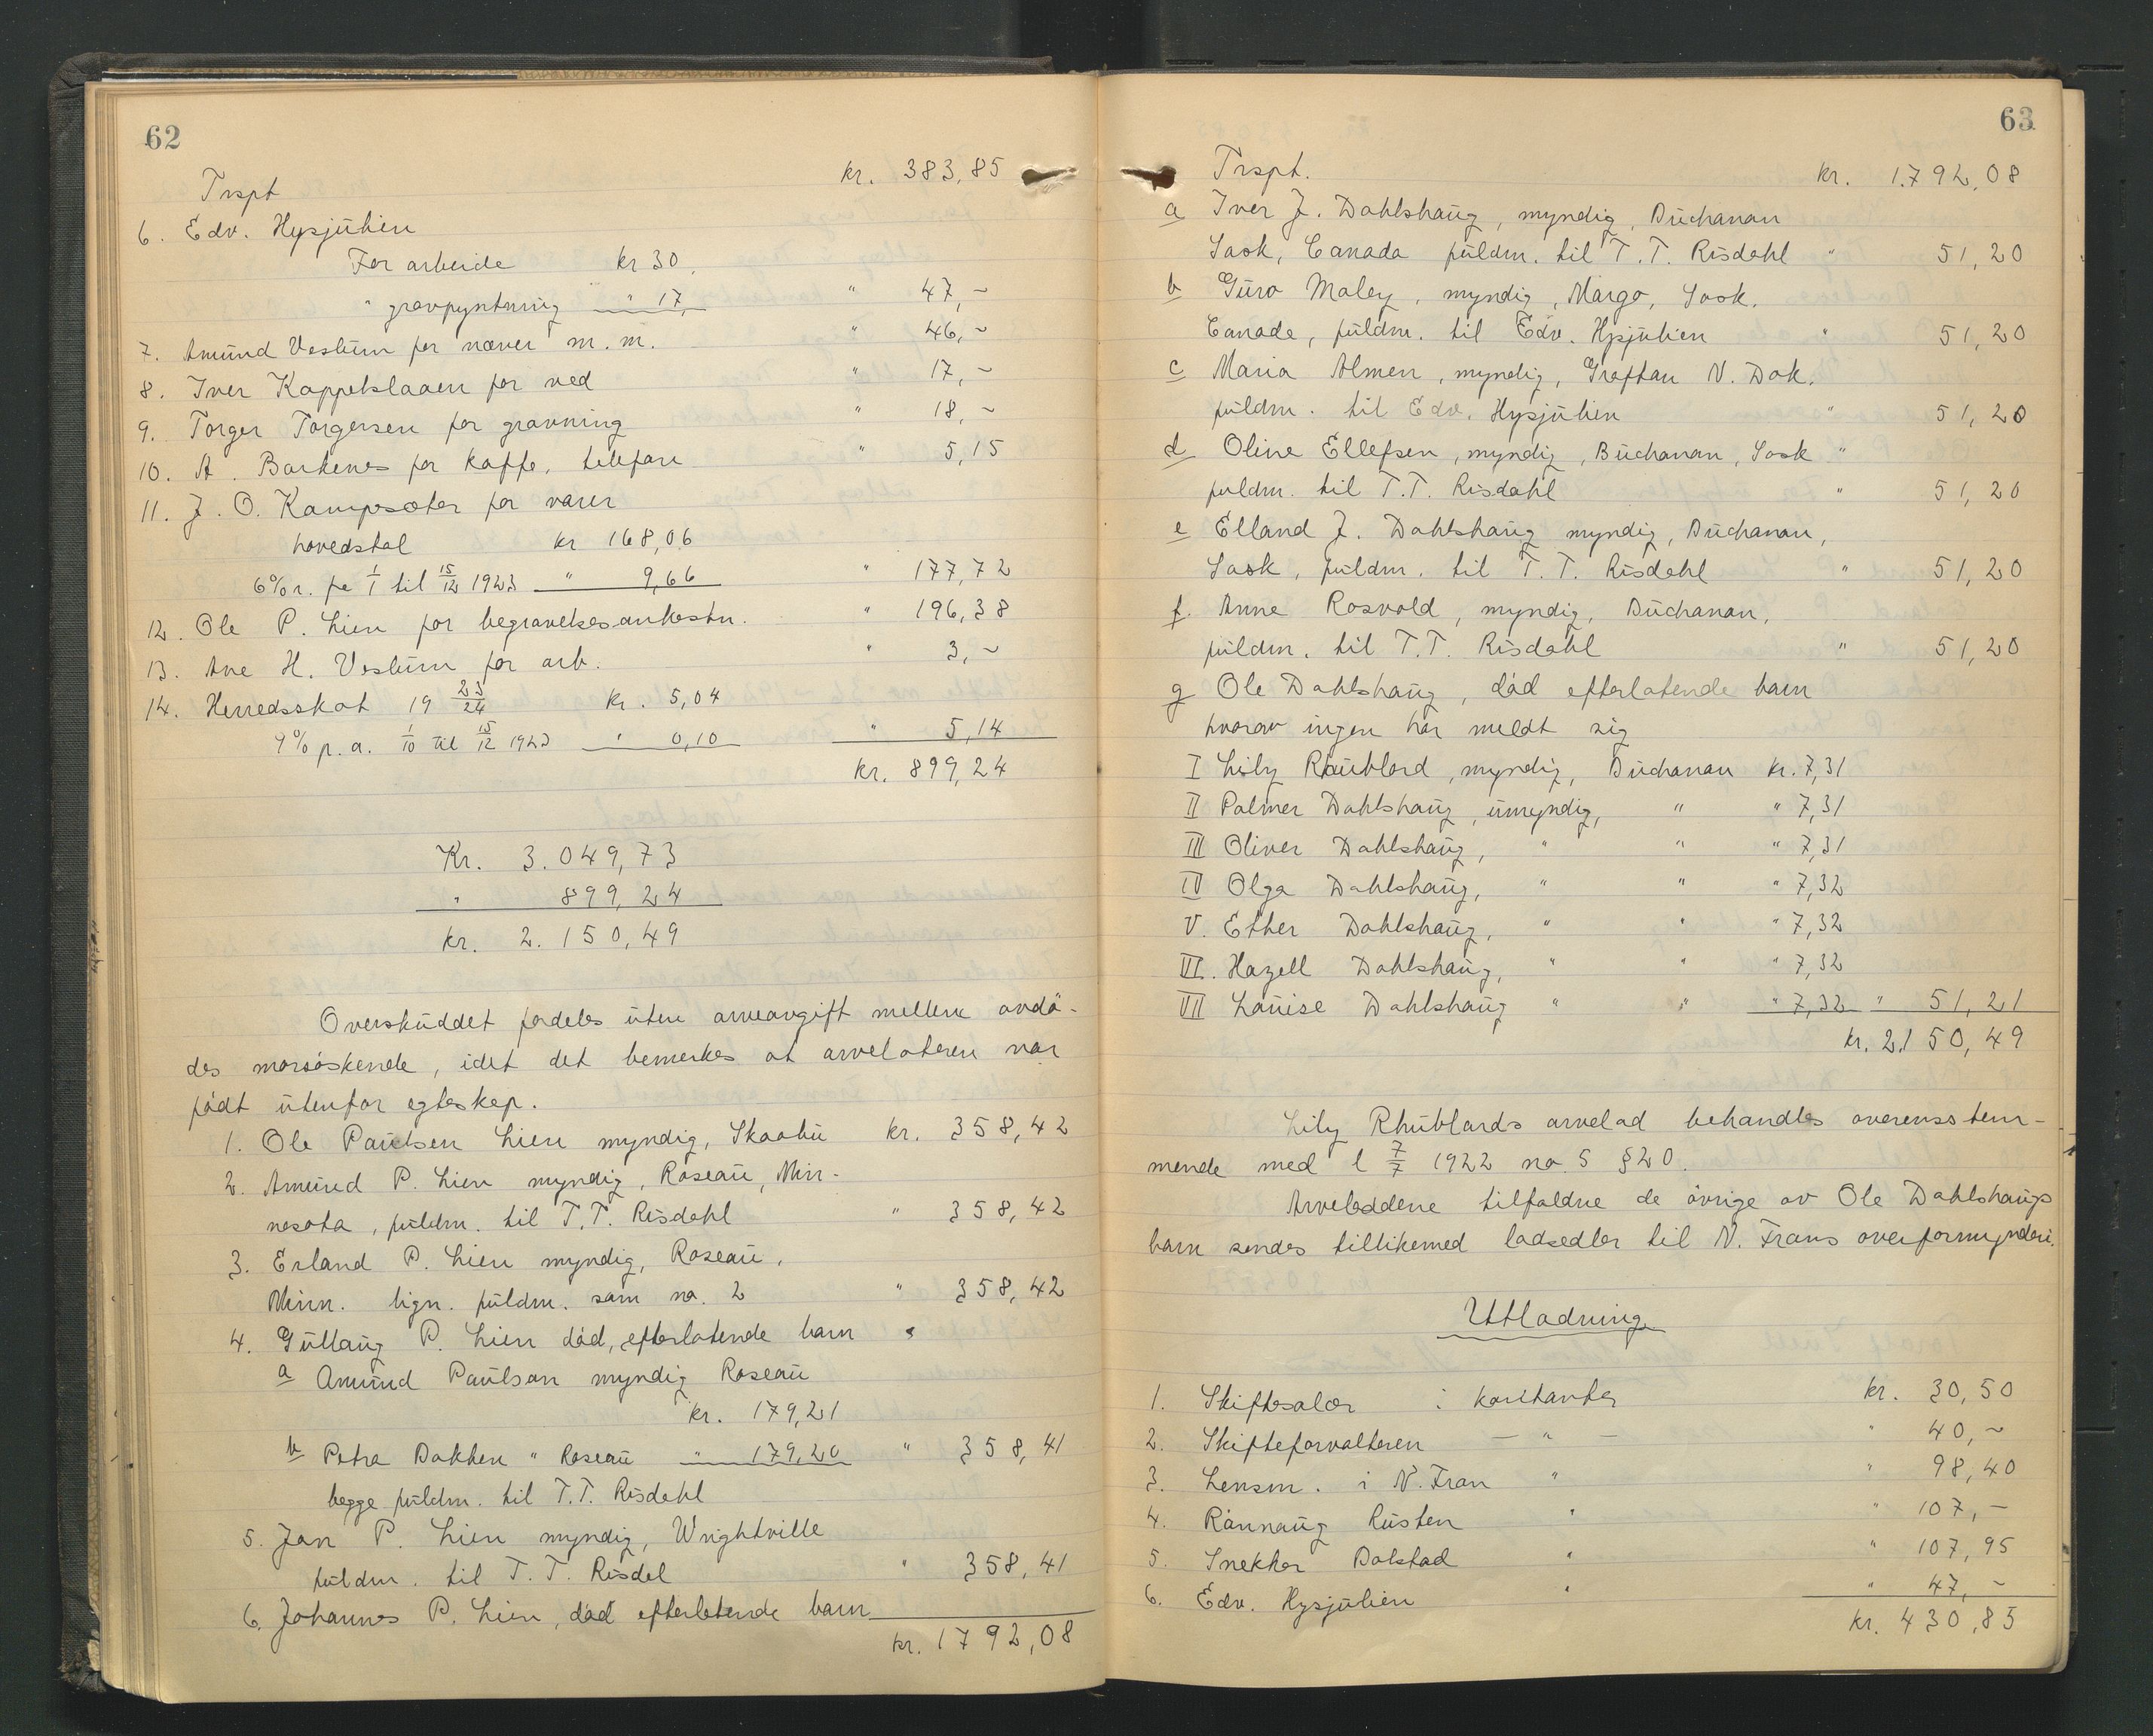 62
Trspt kr. 383,85
6. Edv. Hysjulien
For arbeide kr 30,
" gravpyntning " 17, " 47,-
7. Amund Vestum for næver m. m. " 46,-
8. Iver Kappelslaaen for ved " 17,-
9. Torger Torgersen for gravning " 18,-
10. A. Barhenes for kaffe, telefon " 5,15
11. J. O. Kampesæter for varer
hovedstol kr 168,06
6% r. fra 1/1 til 15/12 1923 " 9,66 " 177,72
12. Ole P. Lien for begravelsesomkostn. " 196,38
13. Ane H. Vestum for arb. " 3,-
14. Herredsskat 19 23/24 kr. 5,04
9% p.a. 1/10 til 15/12 1923 " 0,10 " 5,14
kr. 899,24
Kr. 3.049,73
" 899,24
kr. 2.150,49
Overskuddet fordeles uten arveavgift mellem avdø-
des morsøskende, idet det bemerkes at arvelateren var
født utenfor egteskap.
1. Ole Paulsen Lien myndig, Skaabu kr. 358,42
2. Amund P. Lien myndig, Roseau, Min-
nesota, fuldm. til T.T. Risdahl " 358,42
3. Erland P. Lien myndig, Roseau,
Minn. lign. fuldm. som no. 2 " 358,42
4. Gullaug P. Lien død, efterlatende barn
a Amund Paulson myndig Roseau
kr. 179,21
b Petra Dokken " Roseau " 179,20 " 358,41
begge fuldm. til T.T. Risdahl
5. Jon P. Lien myndig, Wrightville
fuldm. til T.T. Risdal " 358,41
6. Johannes P. Lien, død efterlatende barn
kr. 1792,08
63
Trspt. kr. 1.792,08
a Iver J. Dahlshaug, myndig, Buchanan
Sask, Canada fuldm. til T.T. Risdahl " 51,20
b Guro Maley, myndig, Margo, Sask.
Canada, fuldm. til Edv. Hysjulien " 51,20
c Maria Almen, myndig, Graftan N. Dak.
fuldm. til Edv. Hysjulien " 51,20
d Oline Ellefsen, myndig, Buchanan, Sask "
fuldm. til T.T. Risdahl " 51,20
e Elland J. Dahlshaug myndig, Buchanan,
Sask, fuldm. til T.T. Risdahl " 51,20
f. Anne Rosvold, myndig, Buchanan,
fuldm. til T.T. Risdahl " 51,20
g Ole Dahlshaug, død efterlatende barn
hvorav ingen har meldt sig
I Lily Rhublard, myndig, Buchanan kr. 7,31
II Palmer Dahlshaug, umyndig, " " 7,31
III Oliver Dahlshaug, " " " 7,31
IV Olga Dahlshaug, " " " 7,32
V. Ether Dahlshaug, " " " 7,32
VI. Hazell Dahlshaug, " " " 7,32
VII Louise Dahlshaug " " " 7,32 " 51,21
kr. 2150,49
Lily Rhublards arvelod behandles overensstem-
mende med l 7/7 1922 no. 5 § 20.
Arveloddene tilfaldne de øvrige av Ole Dahlshaugs
barn sendes tillikemed lodsedler til N. Frons overformynderi.
Utlodning
1. Skiftesalær : kontanter kr. 30,50
2. Skifteforvalteren - " - " 40,-
3. Lensm. i N. Fron " " 98,40
4. Rønnaug Rusten " " 107,-
5. Snekker Dalstad " " 107,95
6. Edv. Hysjulien " " 47,-
kr. 430,85